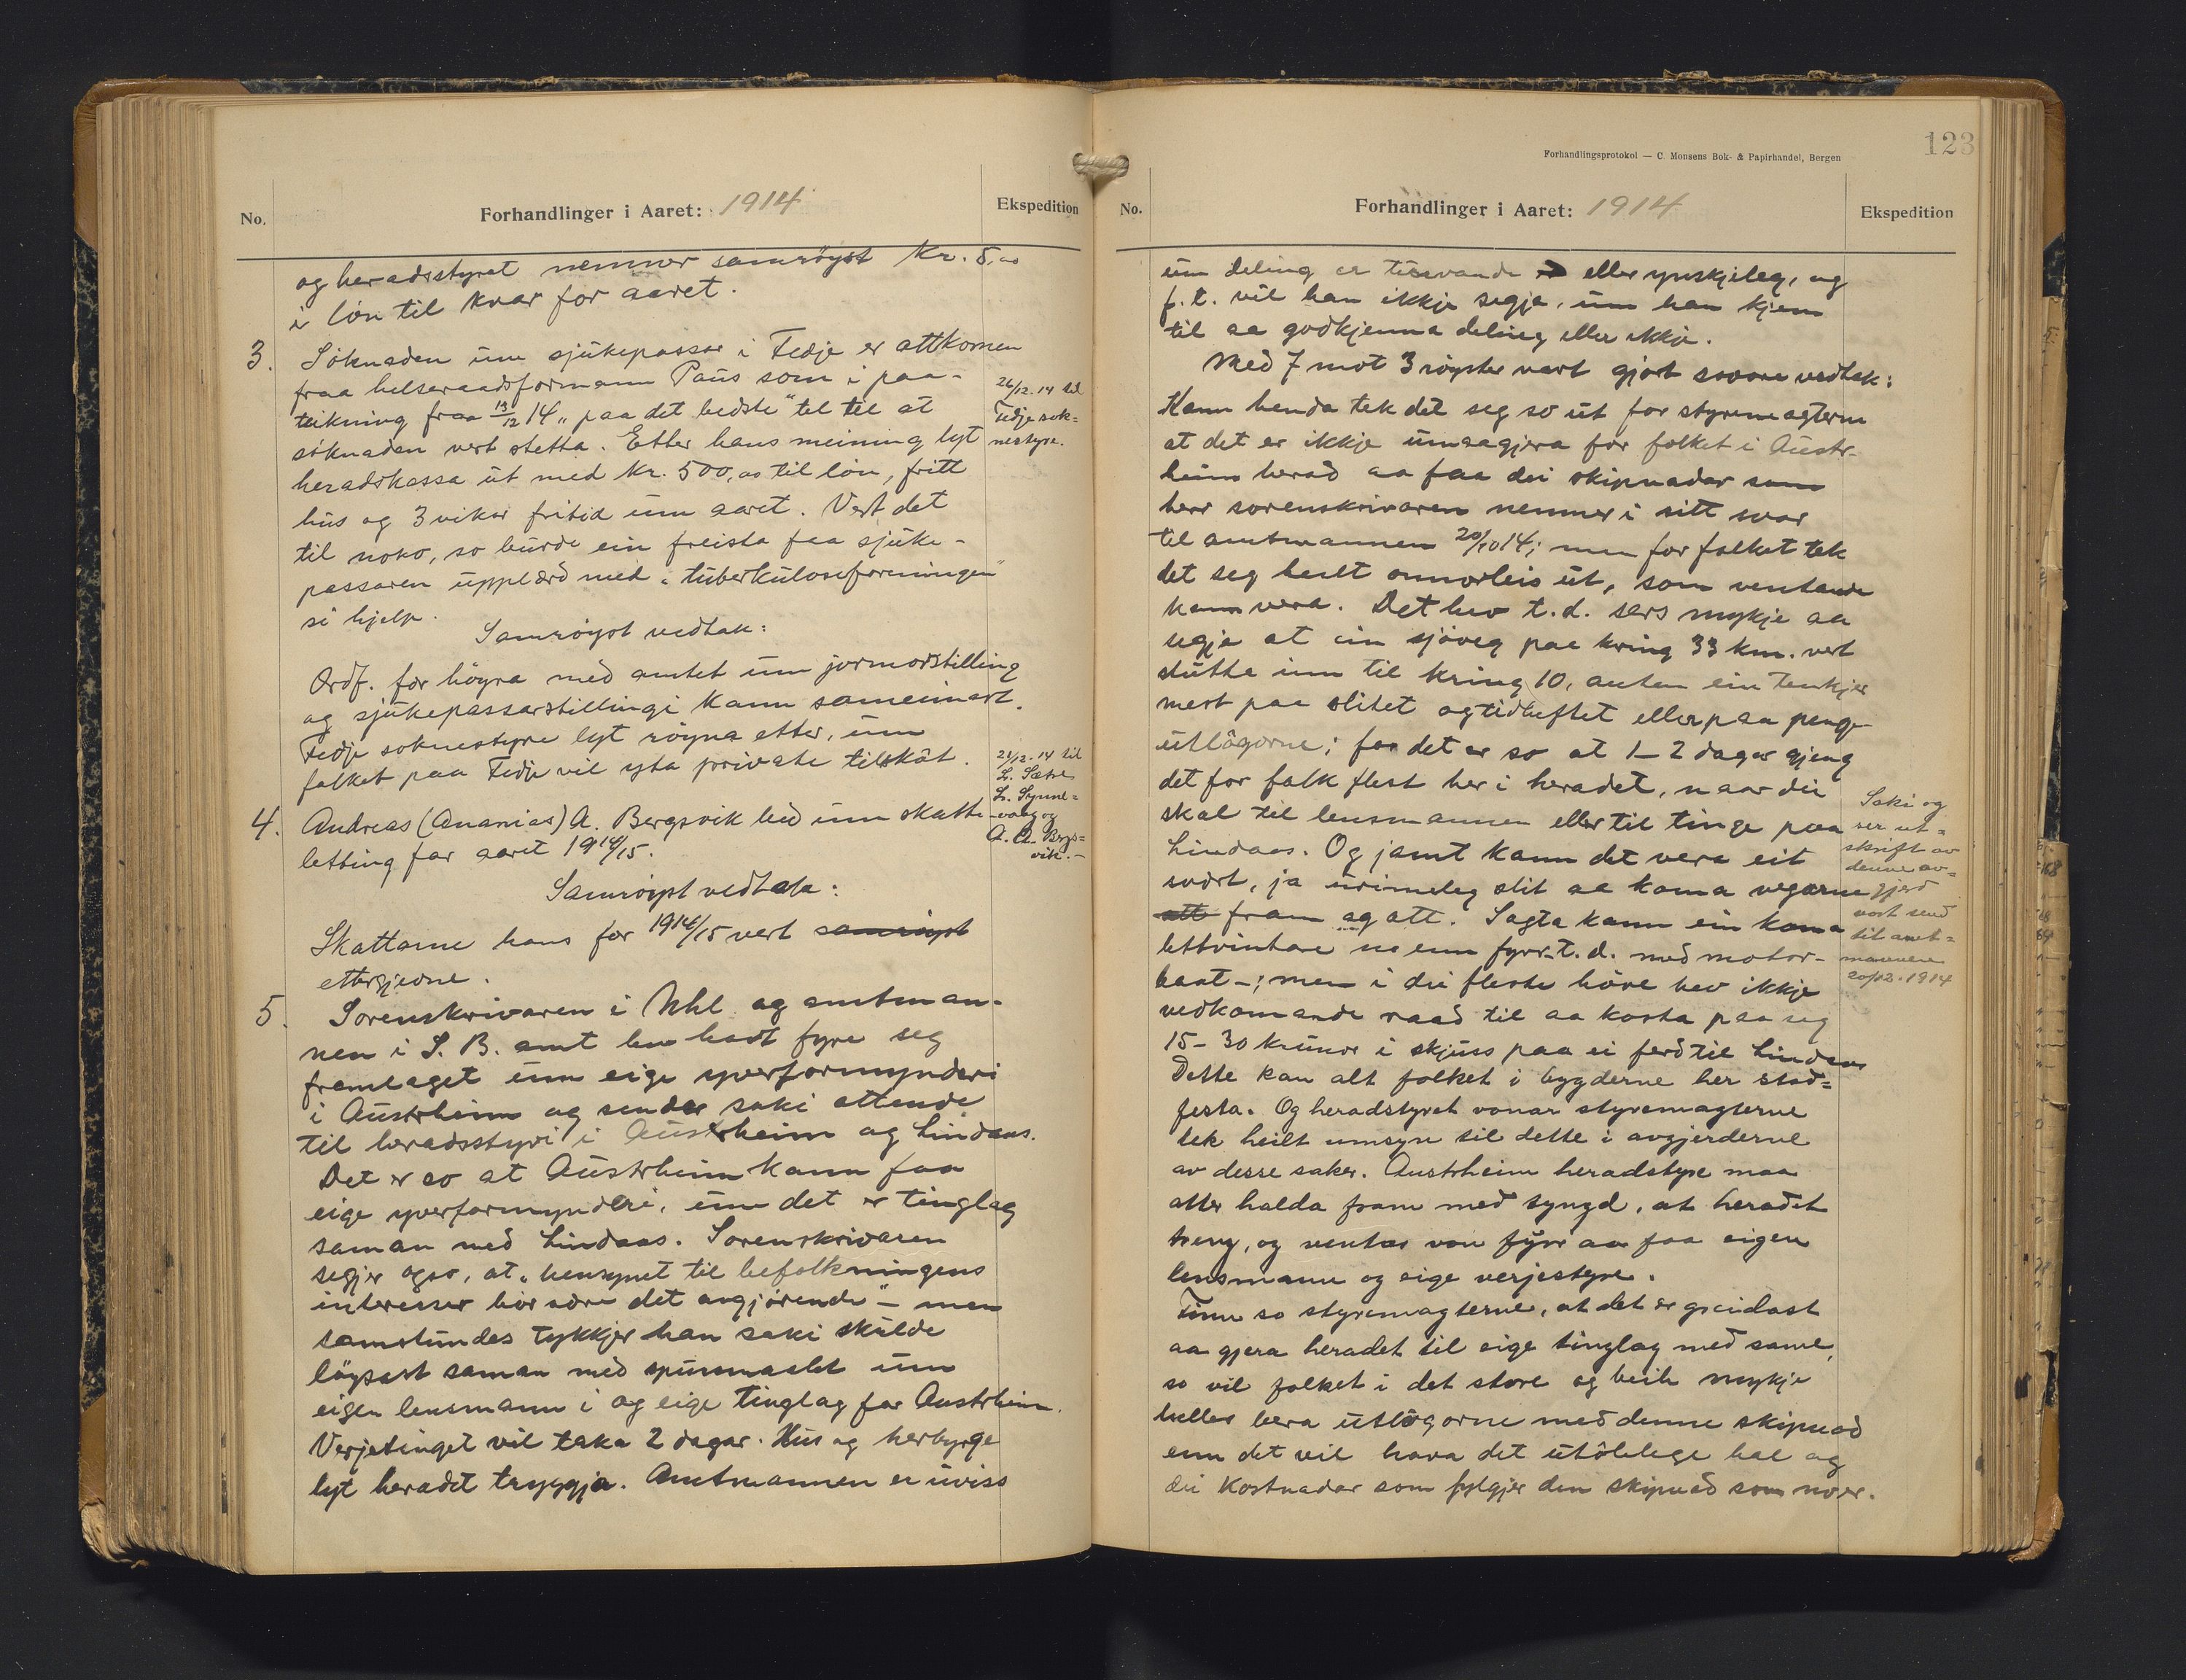 No.
Forhandlinger i Aaret: 1914
Ekspedition
og heradsstyret nemner samröyst Kr. 5,00
i lön til kvar for aaret.
3. Söknaden um sjukepassar i Fedje er attkomen
fraa helseraadsformann Paus som i paa-
teikning fraa 13/12 14 „paa det bedste" tel til at
söknaden vert stetta. Etter hans meining lyt
heradskassa ut med Kr. 500,00 til lön, fritt
hus og 3 vikor fritid um aaret. Vert det
til noko, so burde ein freista faa sjuke-
passaren upplærd med „tuberkuloseforeningen"
si hjelp.
26/12.14 til
Fedje sok=
nestyre.
Samröyst vedtak:
Ordf.för höyra med amtet um jormorstilling
og sjukepassarstillingi kann sameinast.
Fedje soknestyre lyt röyna etter, um
folket paa Fedje vil yta private tilskot.
4. Andreas (Ananias) A. Bergsvik bed um skatte
letting for aaret 1914/15.
21/12.14 til
L. Sætre
L. Synne=
vaag og
A. A. Bergs=
vik.-
Samröyst vedtak:
Skattarne hans for 1914/15 vert samröyst
ettergjevne.
5. Sorenskrivaren i Nhl. og amtman-
nen i S. B. amt hev havt fyre seg
framlaget um eige yverformynderi
i Austrheim og sender saki attende
til heradsstyri i Austrheim og Lindaas.
Det er so at Austrheim kann faa
eige yverformynderi, um det er tinglag
saman med Lindaas. Sorenskrivaren
segjer ogso, at „hensynet til befolkningens
interesser bör være det avgjörende" – men
samstundes tykkjer han saki skulde
löysast saman med spursmaalet um
eigen lensmann i og eige tinglag for Austrheim.
Verjetinget vil taka 2 dagar. Hus og herbyrge
lyt heradet tryggja. Amtmannen er uviss
123
Forhandlingsprotokol — C. Monsens Bok- & Papirhandel, Bergen
No.
Forhandlinger i Aaret: 1914
Ekspedition
um deling er turvande eller ynskjeleg, og
f. t. vil han ikkje segja, um han kjem
til aa godkjenna deling eller ikkje.
Med 7 mot 3 röyster vart gjort sovore vedtak:
Kann henda tek det seg so ut for styremagterne
at det er ikkje umaagjera for folket i Austr-
heim herad aa faa dei skipnadar som
herr sorenskrivaren nemner i sitt svar
til amtmannen 20/10 14; men for folket tek
det seg heilt onnorleis ut, som ventande
kann vera. Det hev t.d. sers mykje aa
segja at ein sjöveg paa kring 33 km. vert
stutta inn til kring 10, anten ein tenkjer
mest paa slitet og tidheftet eller paa penge
utlögorne; for det er so at 1–2 dagar gjeng
det for folk flest her i heradet, naar dei
skal til lensmannen eller til tinge paa
Lindaas. Og jamt kann det vera eit
svært, ja urimeleg slit aa koma vegarne
att fram og att. Sagta kann ein koma
lettvintare no enn fyrr – t. d. med motor-
baat –; men i dei fleste höve hev ikkje
vedkomande raad til aa kosta paa seg
15–30 krunor i skjuss paa ei ferd til Lindaas
Dette kan alt folket i bygderne her stad=
festa. Og heradstyret vonar styremagterne
tek heilt umsyn til dette i avgjerderne
av desse saker. Austrheim heradstyre maa
atter halda fram med tyngd, at heradet
treng, og ventar von fyrr aa faa eigen
lensmann og eige verjestyre.
Finn so styremagterne, at det er greidast
aa gjera heradet til eige tinglag med same,
so vil folket i det store og heile mykje
heller bera utlögorne med denne skipnad
enn det vil hava det utölelege hal og
dei kostnadar som fylgjer den skipnad som no er.
Saki og
ser ut=
skrift av
denne av=
gjerd
vart send
til amt=
mannen
20/12.1914